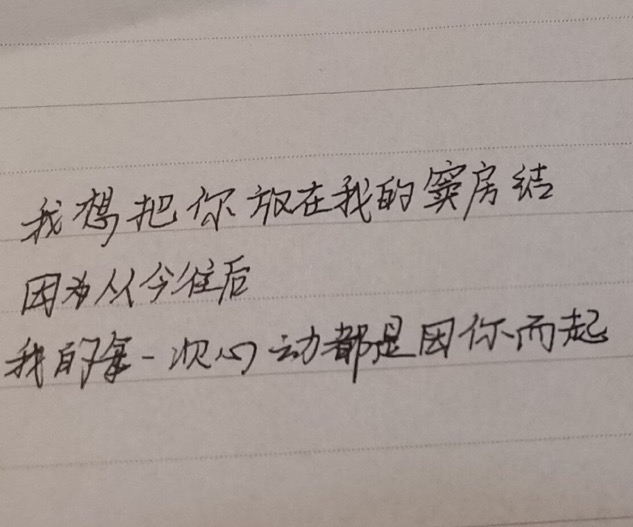 我想把你放在我的窦房结
因为从今往后
我的每一次心动都是因你而起